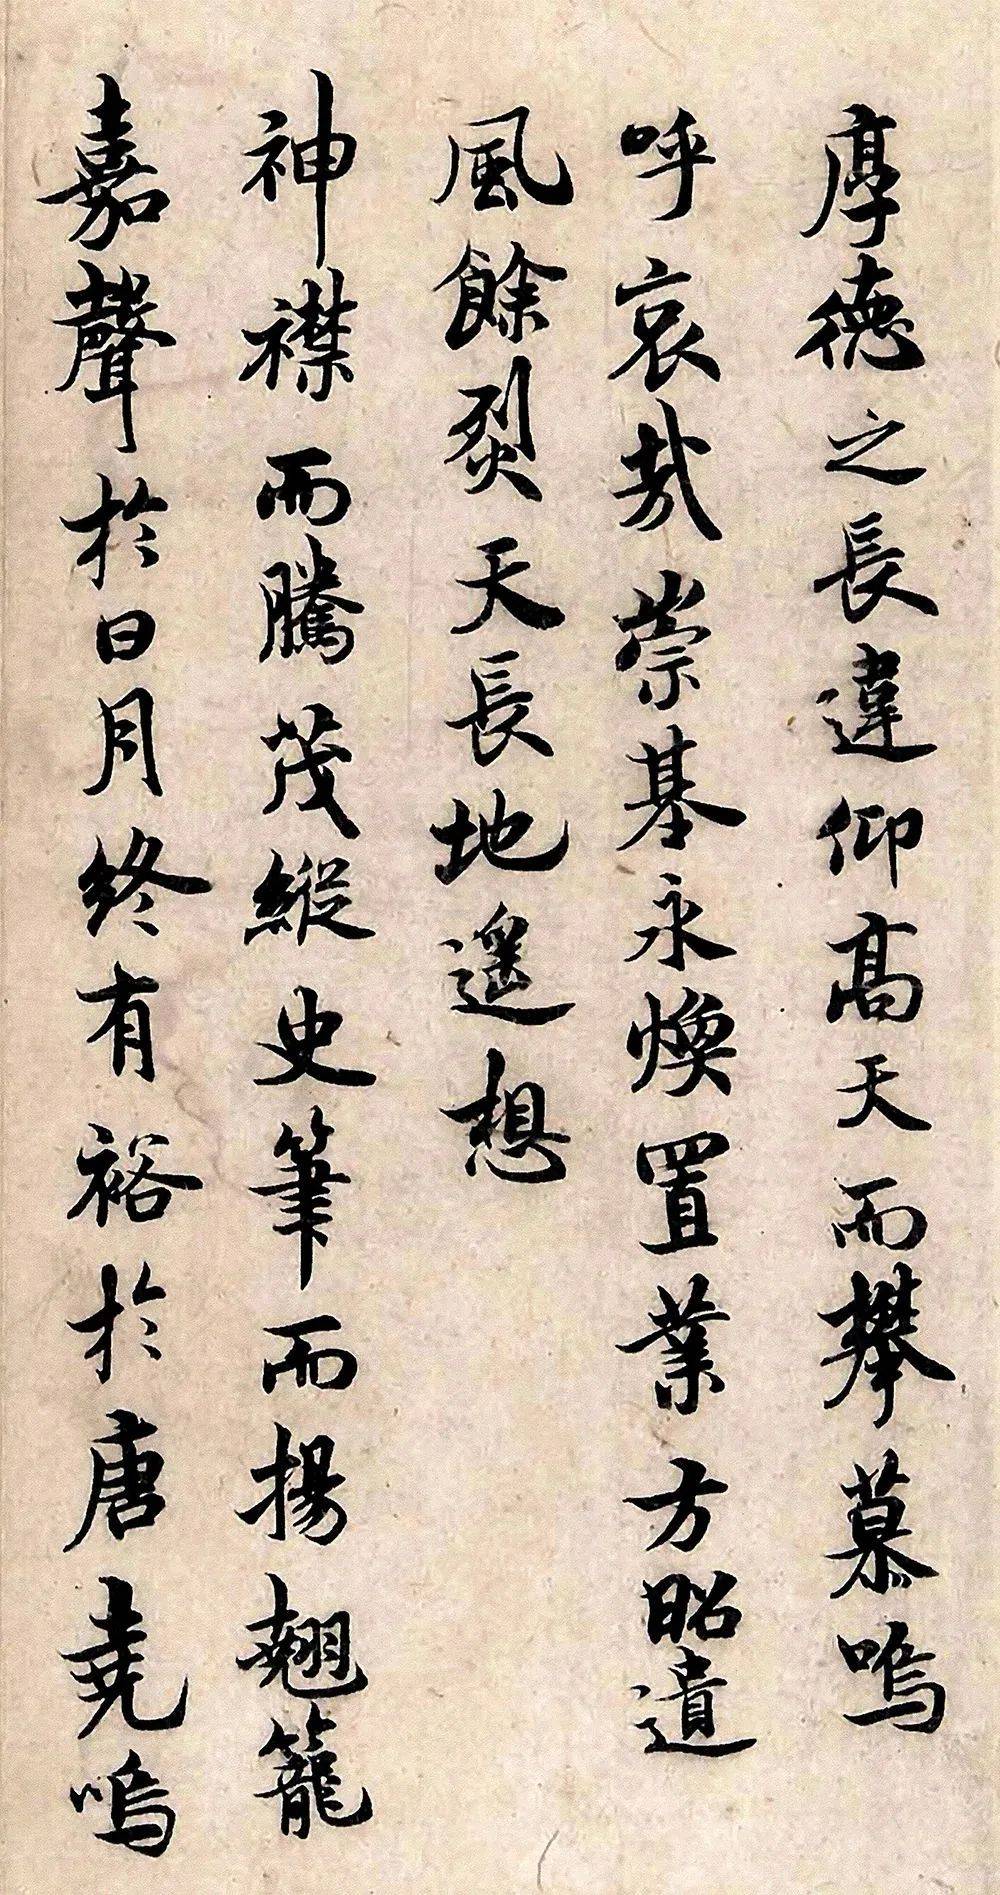 厚德之長違仰高天而攀慕嗚
呼哀哉崇基永煥置業方昭遺
風餘烈天長地遥想
神襟而騰茂縱史筆而揚翹籠
嘉聲於日月終有裕於唐堯嗚